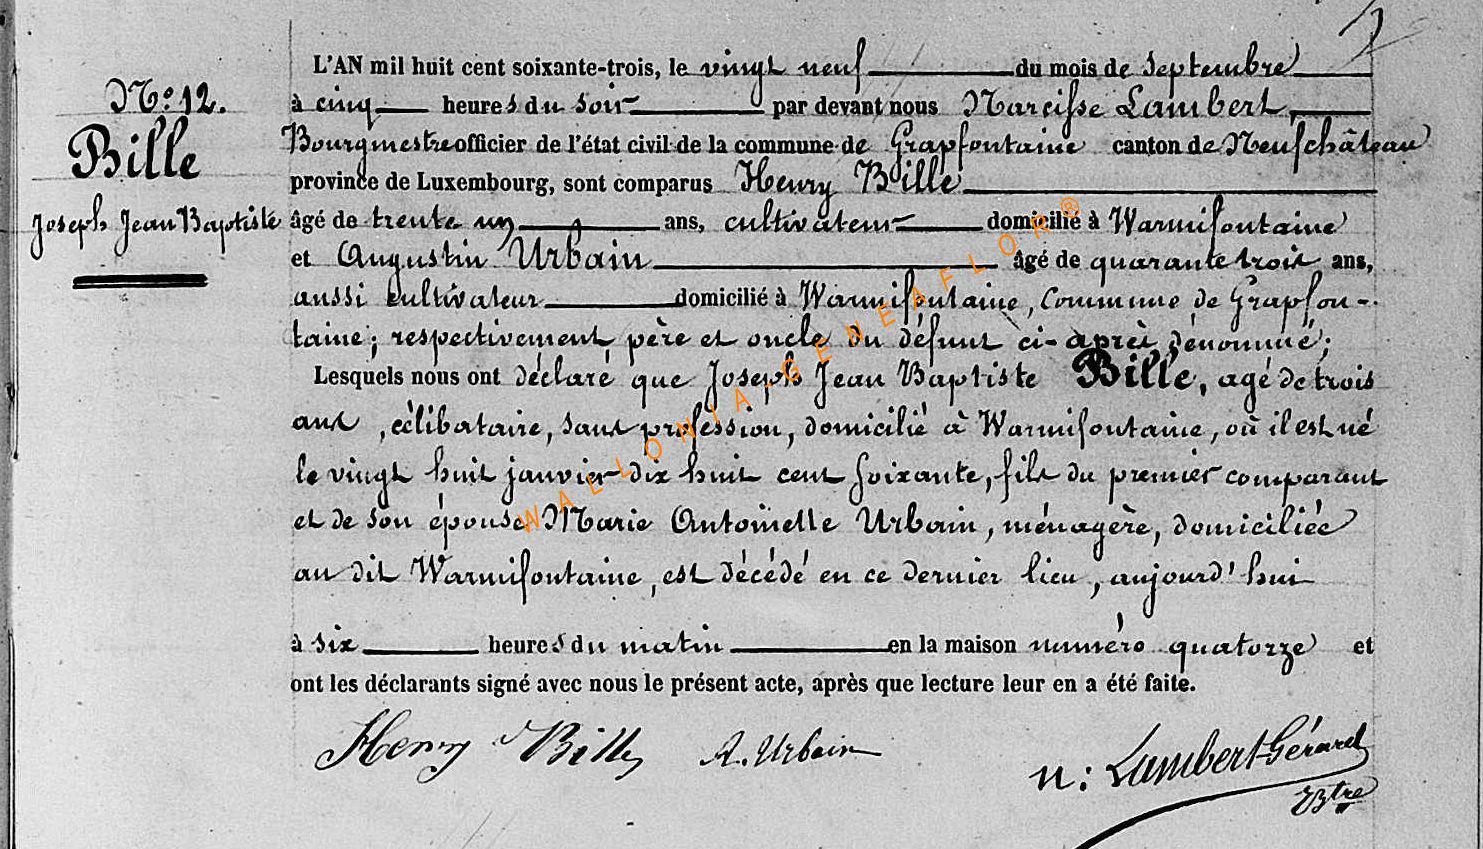 N.° 12.
Bille
Joseph Jean Baptiste
L'AN mil huit cent soixante-trois, le vingt neuf du mois de septembre
à cinq heures du soir par devant nous Narcisse Lambert,
Bourgmestre officier de l'état civil de la commune de Grapfontaine canton de Neufchâteau
province de Luxembourg, sont comparus Henry Bille
âgé de trente un ans, cultivateur domicilié à Warmifontaine
et Augustin Urbain âgé de quarante trois ans,
aussi cultivateur domicilié à Warmifontaine, commune de Grapfon-
taine; respectivement père et oncle du défunt ci-après dénommé;
Lesquels nous ont déclaré que Joseph Jean Baptiste Bille, agé de trois
ans, célibataire, sans profession, domicilié à Warmifontaine, où il est né
le vingt huit janvier dix huit cent soixante, fils du premier comparant
et de son épouse Marie Antoinette Urbain, ménagère, domiciliée
au dit Warmifontaine, est décédé en ce dernier lieu, aujourd'hui
à six heures du matin en la maison numéro quatorze et
ont les déclarants signé avec nous le présent acte, après que lecture leur en a été faite.
Henry Bille A. Urbain
N: Lambert-Gérard
Btre
WALLONIA-GENEAFLOR®